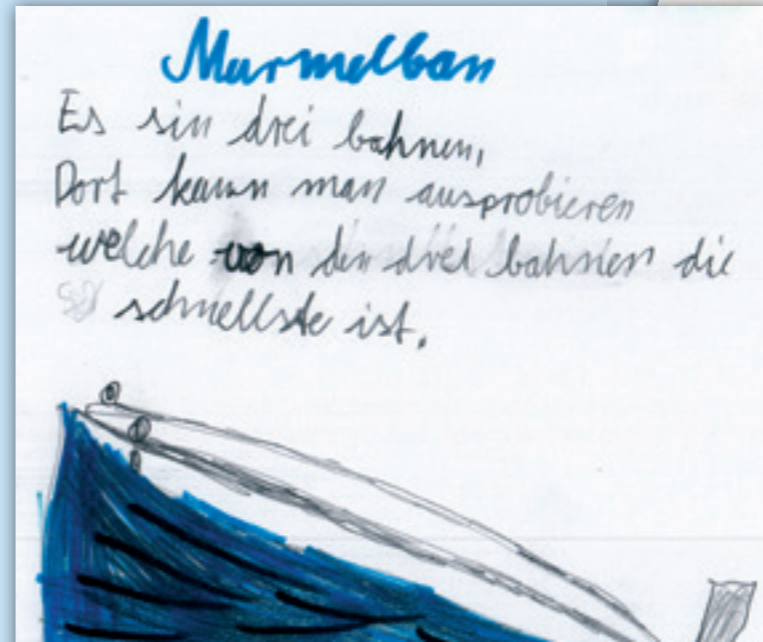 Murmelban
Es sin drei bahnen,
Dort kann man ausprobieren
welche von den drei bahnen die
schnellste ist.